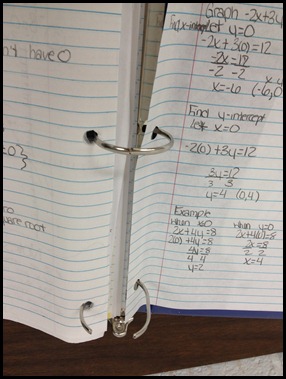 have 0
=0}
root
Graph -2x+3y
Find x-intercept let y=0
-2x+3(0)=12
-2x=12
-2 -2
x=-6 (-6,0
Find y-intercept
let x=0
-2(0)+3y=12
3y=12
3 3
y=4 (0,4)
Example
when x=0 when y=0
2x+4y=8 2x+4(0)=8
2(0)+4y=8 2x=8
4y=8 2 2
4 4 x=4
y=2